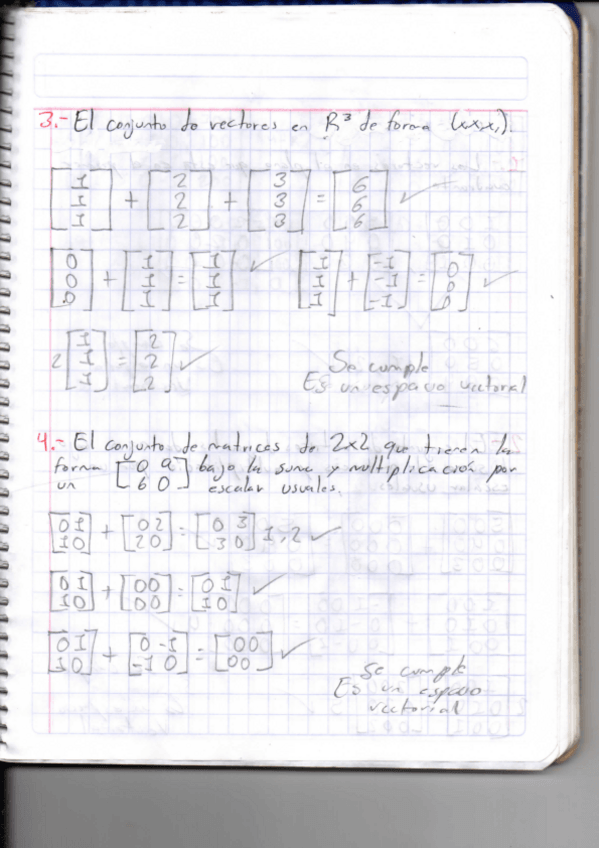 3.- El conjunto de vectores en R³ de forma (x,x,x,).
[1 1 1] + [2 2 2] + [3 3 3] = [6 6 6] ✓
[0 0 0] + [1 1 1] = [1 1 1] ✓ [1 1 1] + [-1 -1 -1] = [0 0 0] ✓
2 [1 1 1] = [2 2 2] ✓
Se cumple
Es un espacio vectorial
4.- El conjunto de matrices de 2x2 que tienen la
forma [0 a b 0] bajo la suma y multiplicación por
un escalar usuales.
[0 1 1 0] + [0 2 2 0] = [0 3 3 0] 1,2 ✓
[0 1 1 0] + [0 0 0 0] = [0 1 1 0] ✓
[0 1 1 0] + [0 -1 -1 0] = [0 0 0 0] ✓
Se cumple
Es un espacio
vectorial